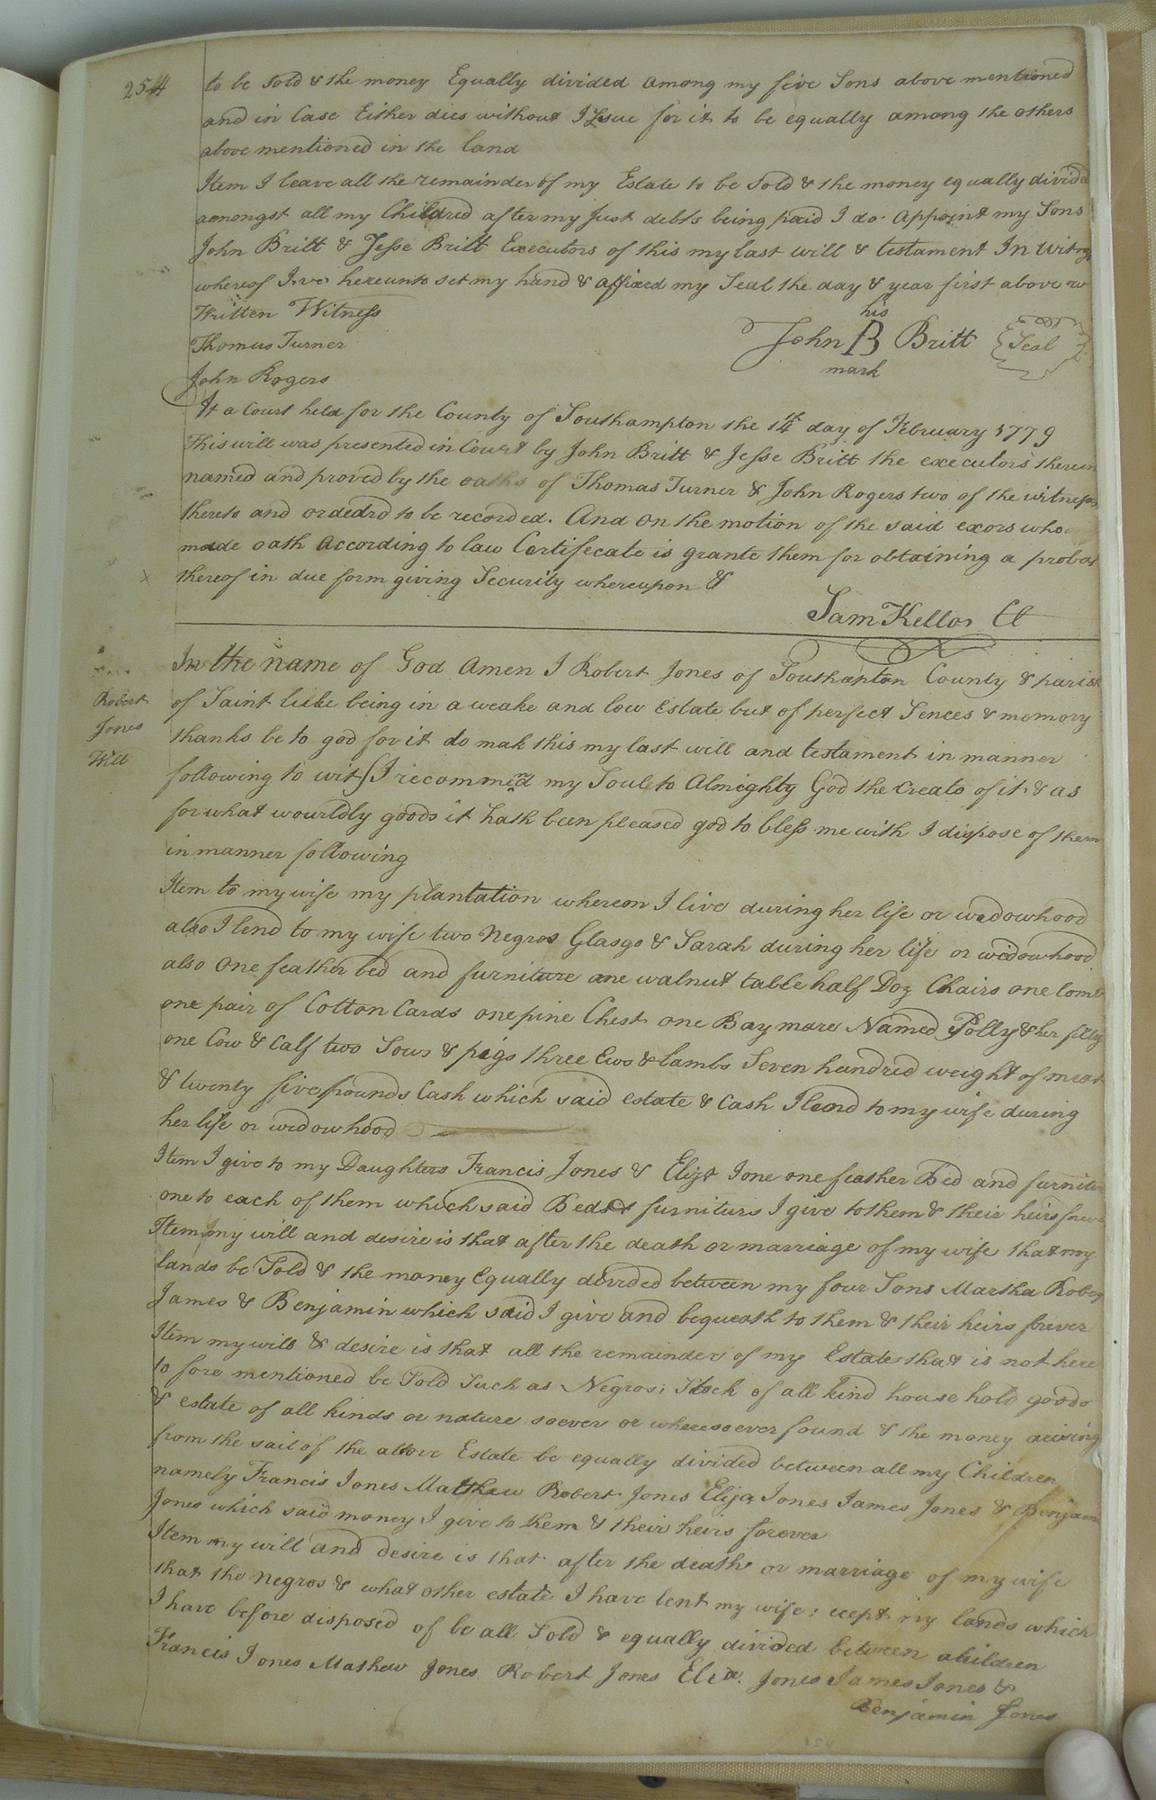 254
to be Sold & the money Equally divided among my five Sons above mentioned
and in Case Either dies without Issue for it to be equally among the others
above mentioned in the land
Item I leave all the remainder of my Estate to be Sold & the money equally divided
amongst all my Children after my just debts being paid I do Appoint my Sons
John Britt & Jesse Britt Executors of this my last will & testament In Witness
whereof I hereunto set my hand & affixed my Seal the day & year first above
Written Witness
his
Thomas Turner
John B Britt Seal
mark
John Rogers
At a Court held for the County of Southampton the 14th day of February 1779
This will was presented in Court by John Britt & Jesse Britt the executors therein
named and proved by the oaths of Thomas Turner & John Rogers two of the witnesses
thereto and ordedrd to be recorded. And on the motion of the said exors who
made oath According to law Certifecate is grante them for obtaining a probat
thereof in due form giving Security whereupon &
Sam Kello Cl
Robert
Jones
Will
In the name of God Amen I Robert Jones of Southamton County & parish
of Saint luke being in a weake and low Estate but of perfect Sences & memory
thanks be to god for it do mak this my last will and testament in manner
following to wit I recommend my Soul to Almighty God the Creato of it & as
for what wourldly goods it hath been pleased god to bless me with I dispose of them
in manner following
Item to my wife my plantation whereon I live during her life or wedowhood
also I lend to my wife two Negros Glasgo & Sarah during her life or widowhood
also One feather bed and furniture one walnut table half Doz Chairs one loom
one pair of Cotton Cards one pine Chest one Bay mare Named Polly & her filly
one Cow & Calf two Sows & pigs three Ews & lambs Seven hundred weight of meat
& twenty five pounds Cash which said estate & Cash I lend to my wife during
her life or wedowhood
Item I give to my Daughters Francis Jones & Eliza Jone one feather Bed and furniture
one to each of them which said Beds & furniturs I give to them & their heirs forever
Item my will and desire is that after the death or marriage of my wife that my
lands be Sold & the money Equally divided between my four Sons Martha Robert
James & Benjamin which said I give and bequeath to them & their heirs forever
Item my will & desire is that all the remainder of my Estate that is not here
to fore mentioned be Sold Such as Negros, Stock of all kind house hold goods
& estate of all kinds or nature soever or wheresoever found & the money arising
from the sail of the above Estate be equally divided between all my Children
namely Francis Jones Matthew Robert Jones Eliza Jones James Jones & Benjamin
Jones which said money I give to them & their heirs forever
Item my will and desire is that after the death or marriage of my wife
that the negros & what other estate I have lent my wife: ecept my lands which
I have before disposed of be all Sold & equally divided between children
Francis Jones Mathew Jones Robert Jones Eliza. Jones James Jones &
Benjamin Jones